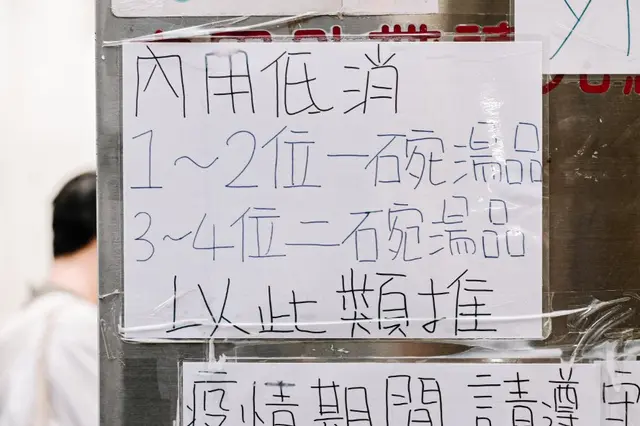 內用低消
1~2位一碗湯品
3~4位二碗湯品
以此類推
疫情期間 請遵守